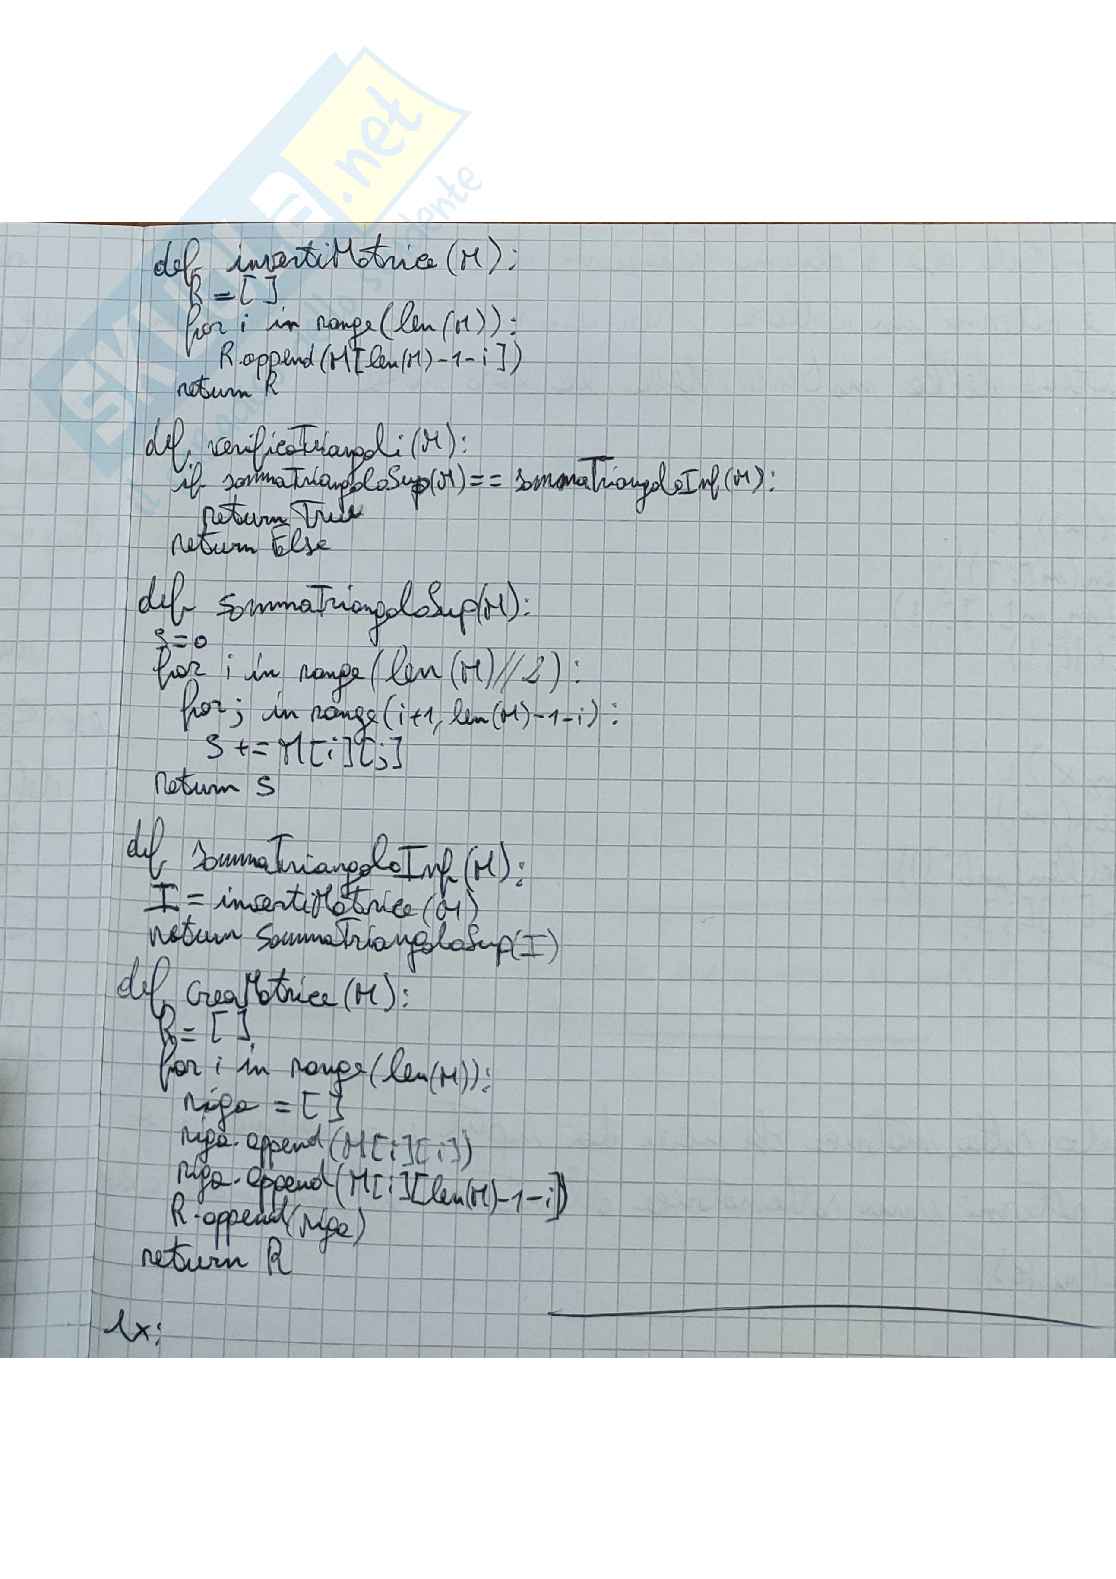 SKUOLA.net
def invertiMatrice(M):
R = [ ]
for i in range(len(M)):
R.append(M[len(M)-1-i])
return R
def verificaTriangoli(M):
if sommaTriangoloSup(M) == sommaTriangoloInf(M):
return True
return Else
def sommaTriangoloSup(M):
s=0
for i in range(len(M)//2):
for j in range(i+1, len(M)-1-i):
s += M[i][j]
return s
def sommaTriangoloInf(M):
I = invertiMatrice(M)
return sommaTriangoloSup(I)
def creaMatrice(M):
R = [ ]
for i in range(len(M)):
riga = [ ]
riga.append(M[i][i])
riga.append(M[i][len(M)-1-i])
R.append(riga)
return R